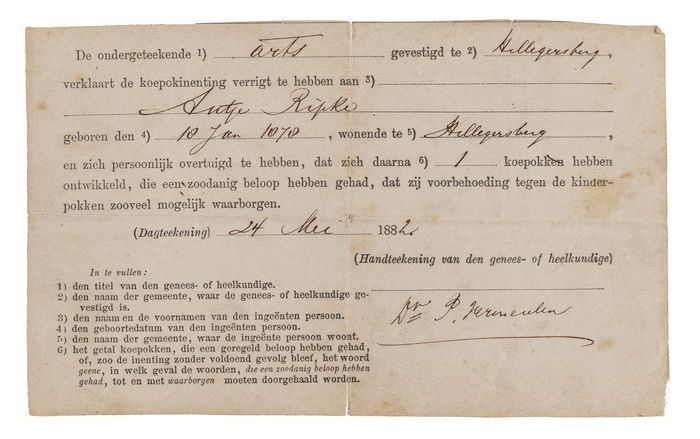 De ondergeteekende 1) arts gevestigd te 2) Hillegersberg,
verklaart de koepokinenting verrigt te hebben aan 3)
Antje Ripke
geboren den 4) 18 Jan 1878, wonende te 5) Hillegersberg,
en zich persoonlijk overtuigd te hebben, dat zich daarna 6) 1 koepokken hebben
ontwikkeld, die een zoodanig beloop hebben gehad, dat zij voorbehoeding tegen de kinder-
pokken zooveel mogelijk waarborgen.
(Dagteekening) 24 Mei 1882.
(Handteekening van den genees- of heelkundige)
Dr P. Vermeulen
In te vullen:
1) den titel van den genees- of heelkundige.
2) den naam der gemeente, waar de genees- of heelkundige ge-
vestigd is.
3) den naam en de voornamen van den ingeënten persoon.
4) den geboortedatum van den ingeënten persoon.
5) den naam der gemeente, waar de ingeënte persoon woont.
6) het getal koepokken, die een geregeld beloop hebben gehad,
of, zoo de inenting zonder voldoend gevolg bleef, het woord
geene, in welk geval de woorden, die een zoodanig beloop hebben
gehad, tot en met waarborgen moeten doorgehaald worden.